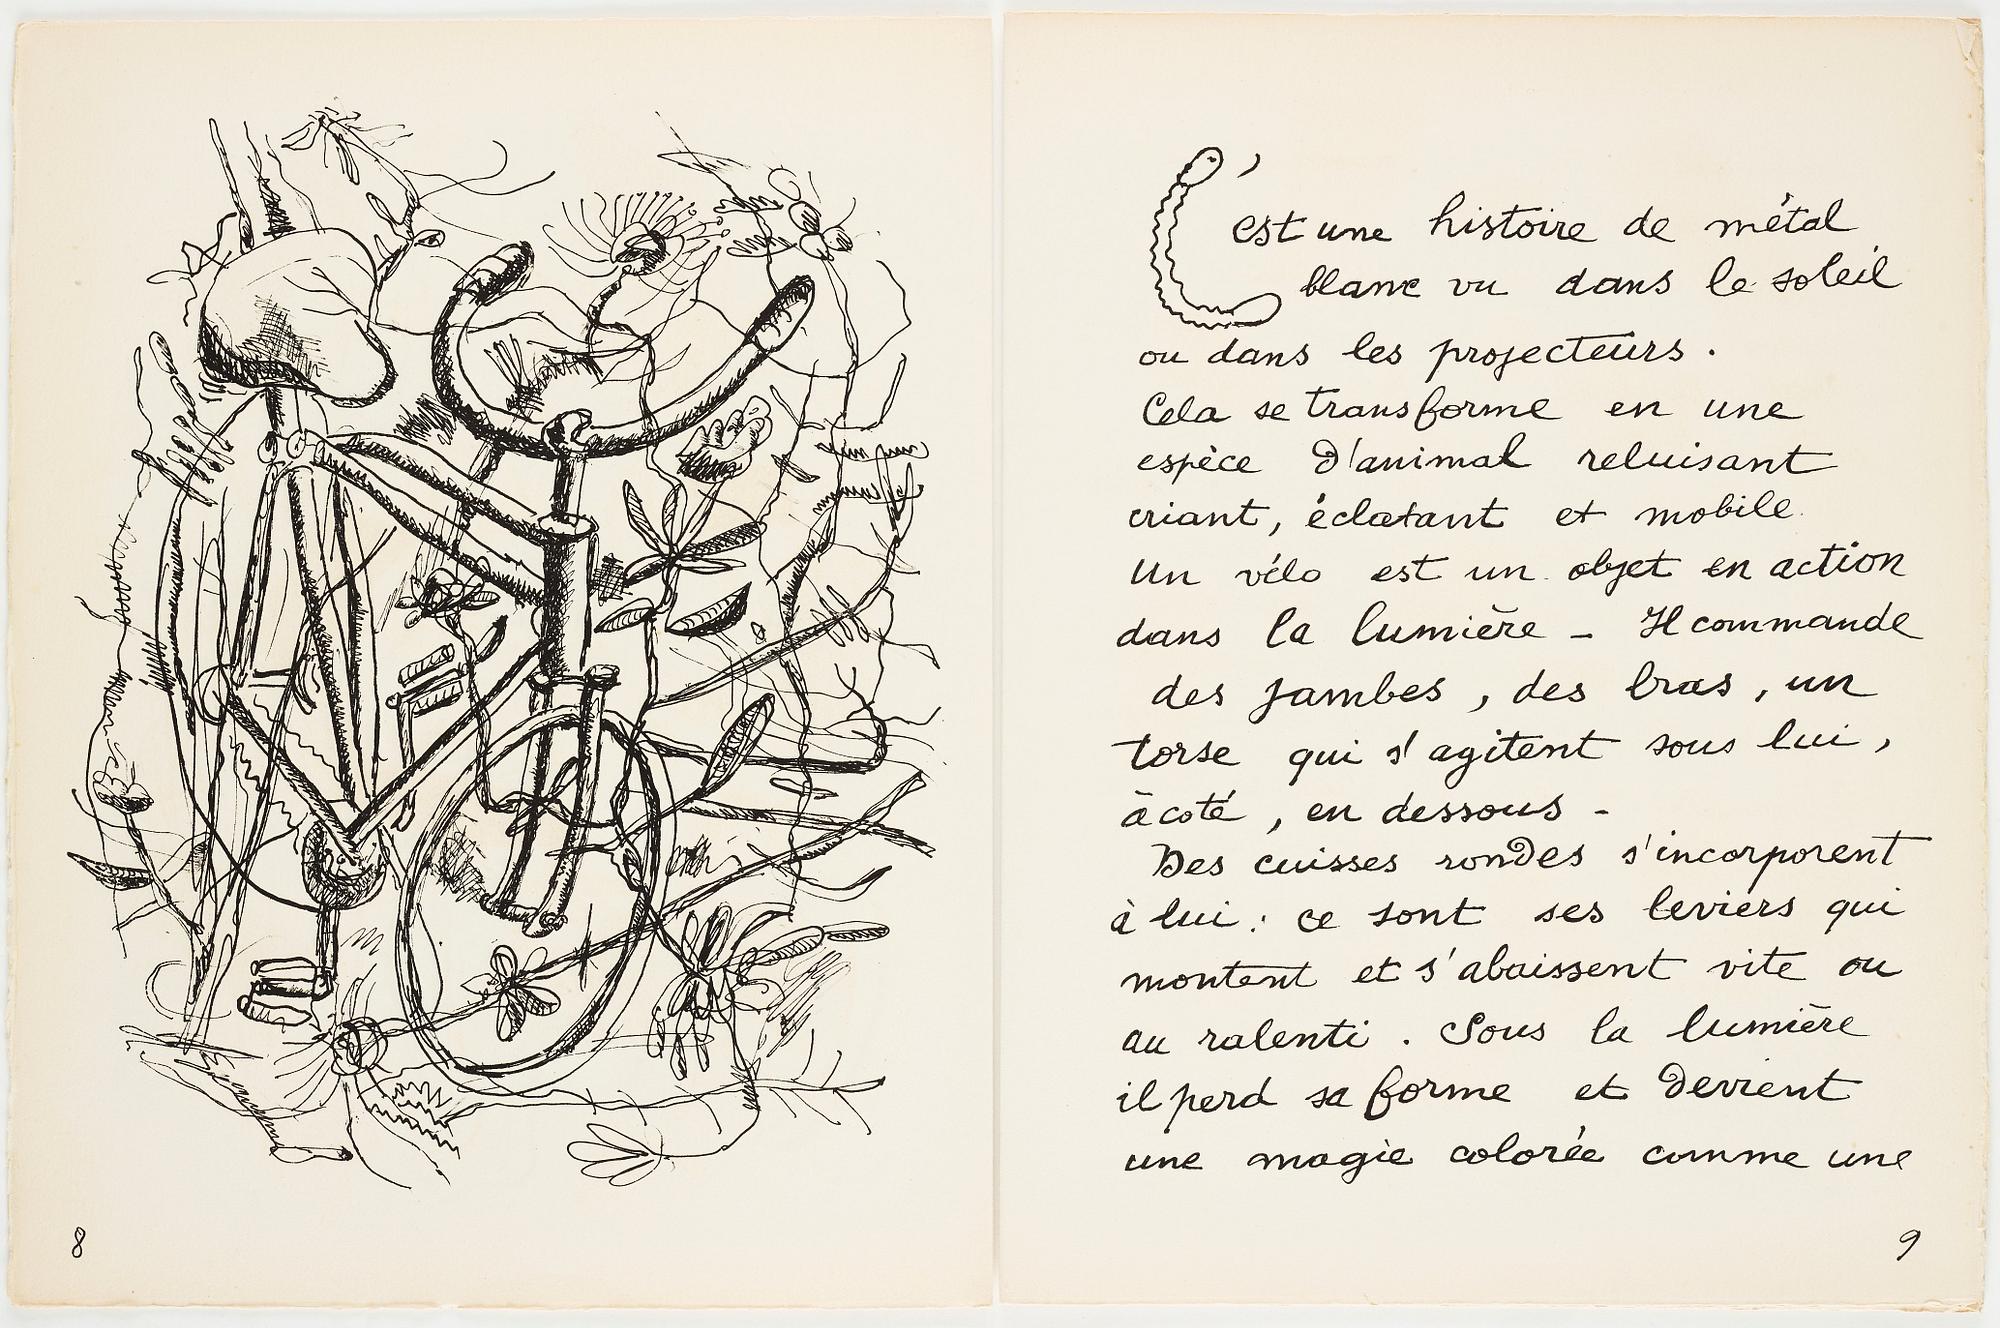 8
C'est une histoire de métal
blanc vu dans le soleil
ou dans les projecteurs.
Cela se transforme en une
espèce d'animal reluisant
criant, éclatant et mobile.
Un vélo est un objet en action
dans la lumière - Il commande
des jambes, des bras, un
torse qui s'agitent sous lui,
à coté, en dessous -
Des cuisses rondes s'incorporent
à lui : ce sont ses leviers qui
montent et s'abaissent vite ou
au ralenti. Sous la lumière
il perd sa forme et devient
une magie colorée comme une
9